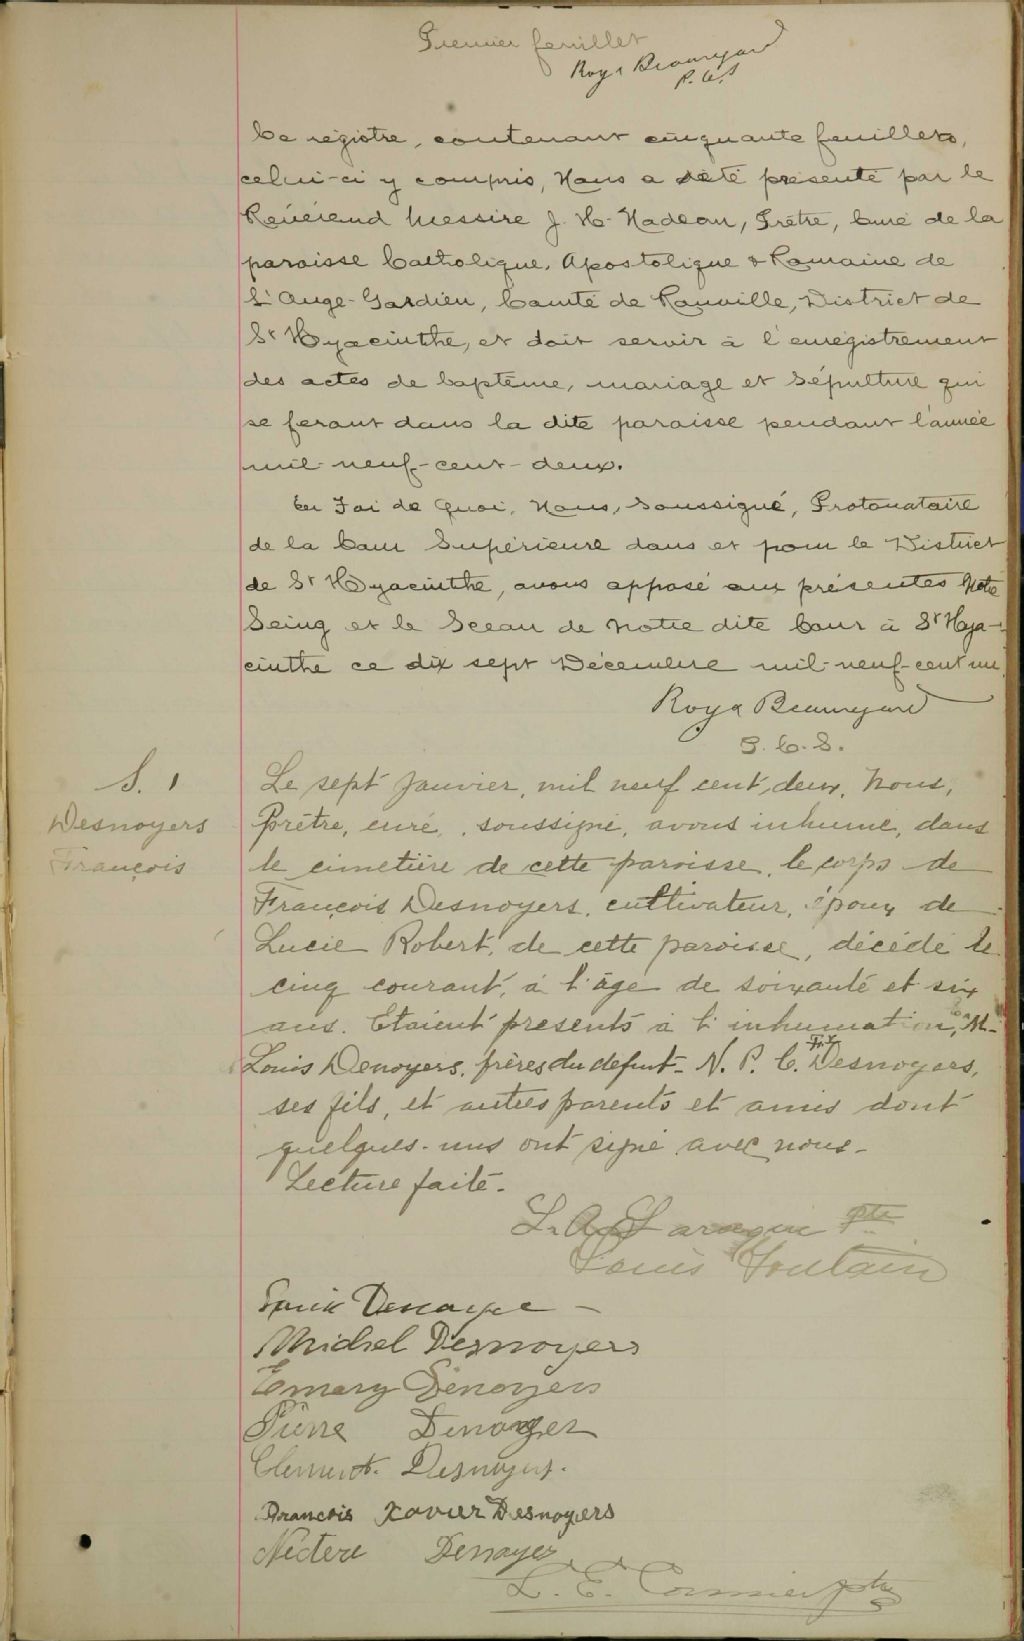 Premier feuillet
Roy & Beauregard
P.C.S
Ce régistre, contenant cinquante feuillets,
celui-ci y compris, Nous a été présenté par le
Révérend Messire J. H. Nadeau, Prêtre, Curé de la
paroisse Catholique, Apostolique & Romaine de
L'Ange-Gardien, Comté de Rouville, District de
St Hyacinthe, et doit servir à l'enrégistrement
des actes de baptême, mariage et sépulture qui
se feront dans la dite paroisse pendant l'année
mil-neuf-cent-deux.
En Foi de Quoi, Nous, soussigné, Protonotaire
de la Cour Supérieure dans et pour le District
de St Hyacinthe, avons apposé aux présentes Notre
Seing et le Sceau de Notre dite Cour à St Hya-
cinthe ce dix sept Décembre mil-neuf-cent un.
Roy & Beauregard
P.C.S.
S. 1
Desnoyers
François
Le sept Janvier, mil neuf cent, deux, Nous,
Prêtre, curé, soussigné, avons inhumé, dans
le cimetière de cette paroisse, le corps de
François Desnoyers, cultivateur, époux de
Lucie Robert, de cette paroisse, décédé le
cinq courant, à l'âge de soixante et six
ans. Etaient présents à l'inhumation, M-
Louis Denoyers, frères du defunt - N. P. C. F.X. Desnoyers,
ses fils, et autres parents et amis dont
quelques-uns ont signé avec nous-
Lecture faite-
L. A. ptre
Louis Foutain
Denoyer -
Michel Desnoyers
Emery Denoyers
Pierre Denoyer
Clement. Desnoyers.
Francois Xavier Desnoyers
Nectere Denoyer
L. E. Cormier ptre